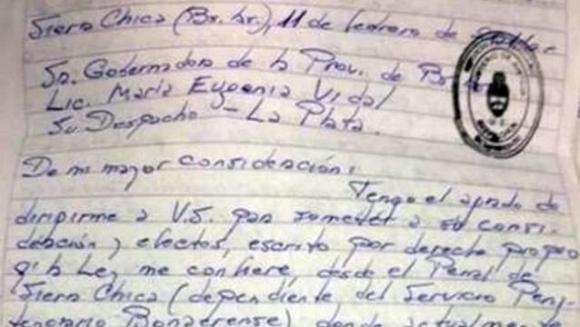 Sierra Chica (Bs. As.), 11 de febrero de
Sa. Gobernadora de la Prov. de Bs
Lic. María Eugenia Vidal
Su Despacho - La Plata.
De mi mayor consideración:
Tengo el agrado de
dirigirme a V.S. para someter a su consi-
deración y efectos, escrito por derecho propio
q' la Ley me confiere, desde el Penal de
Sierra Chica (dependiente del Servicio Peni-
tenciario Bonaerense) donde actualmente